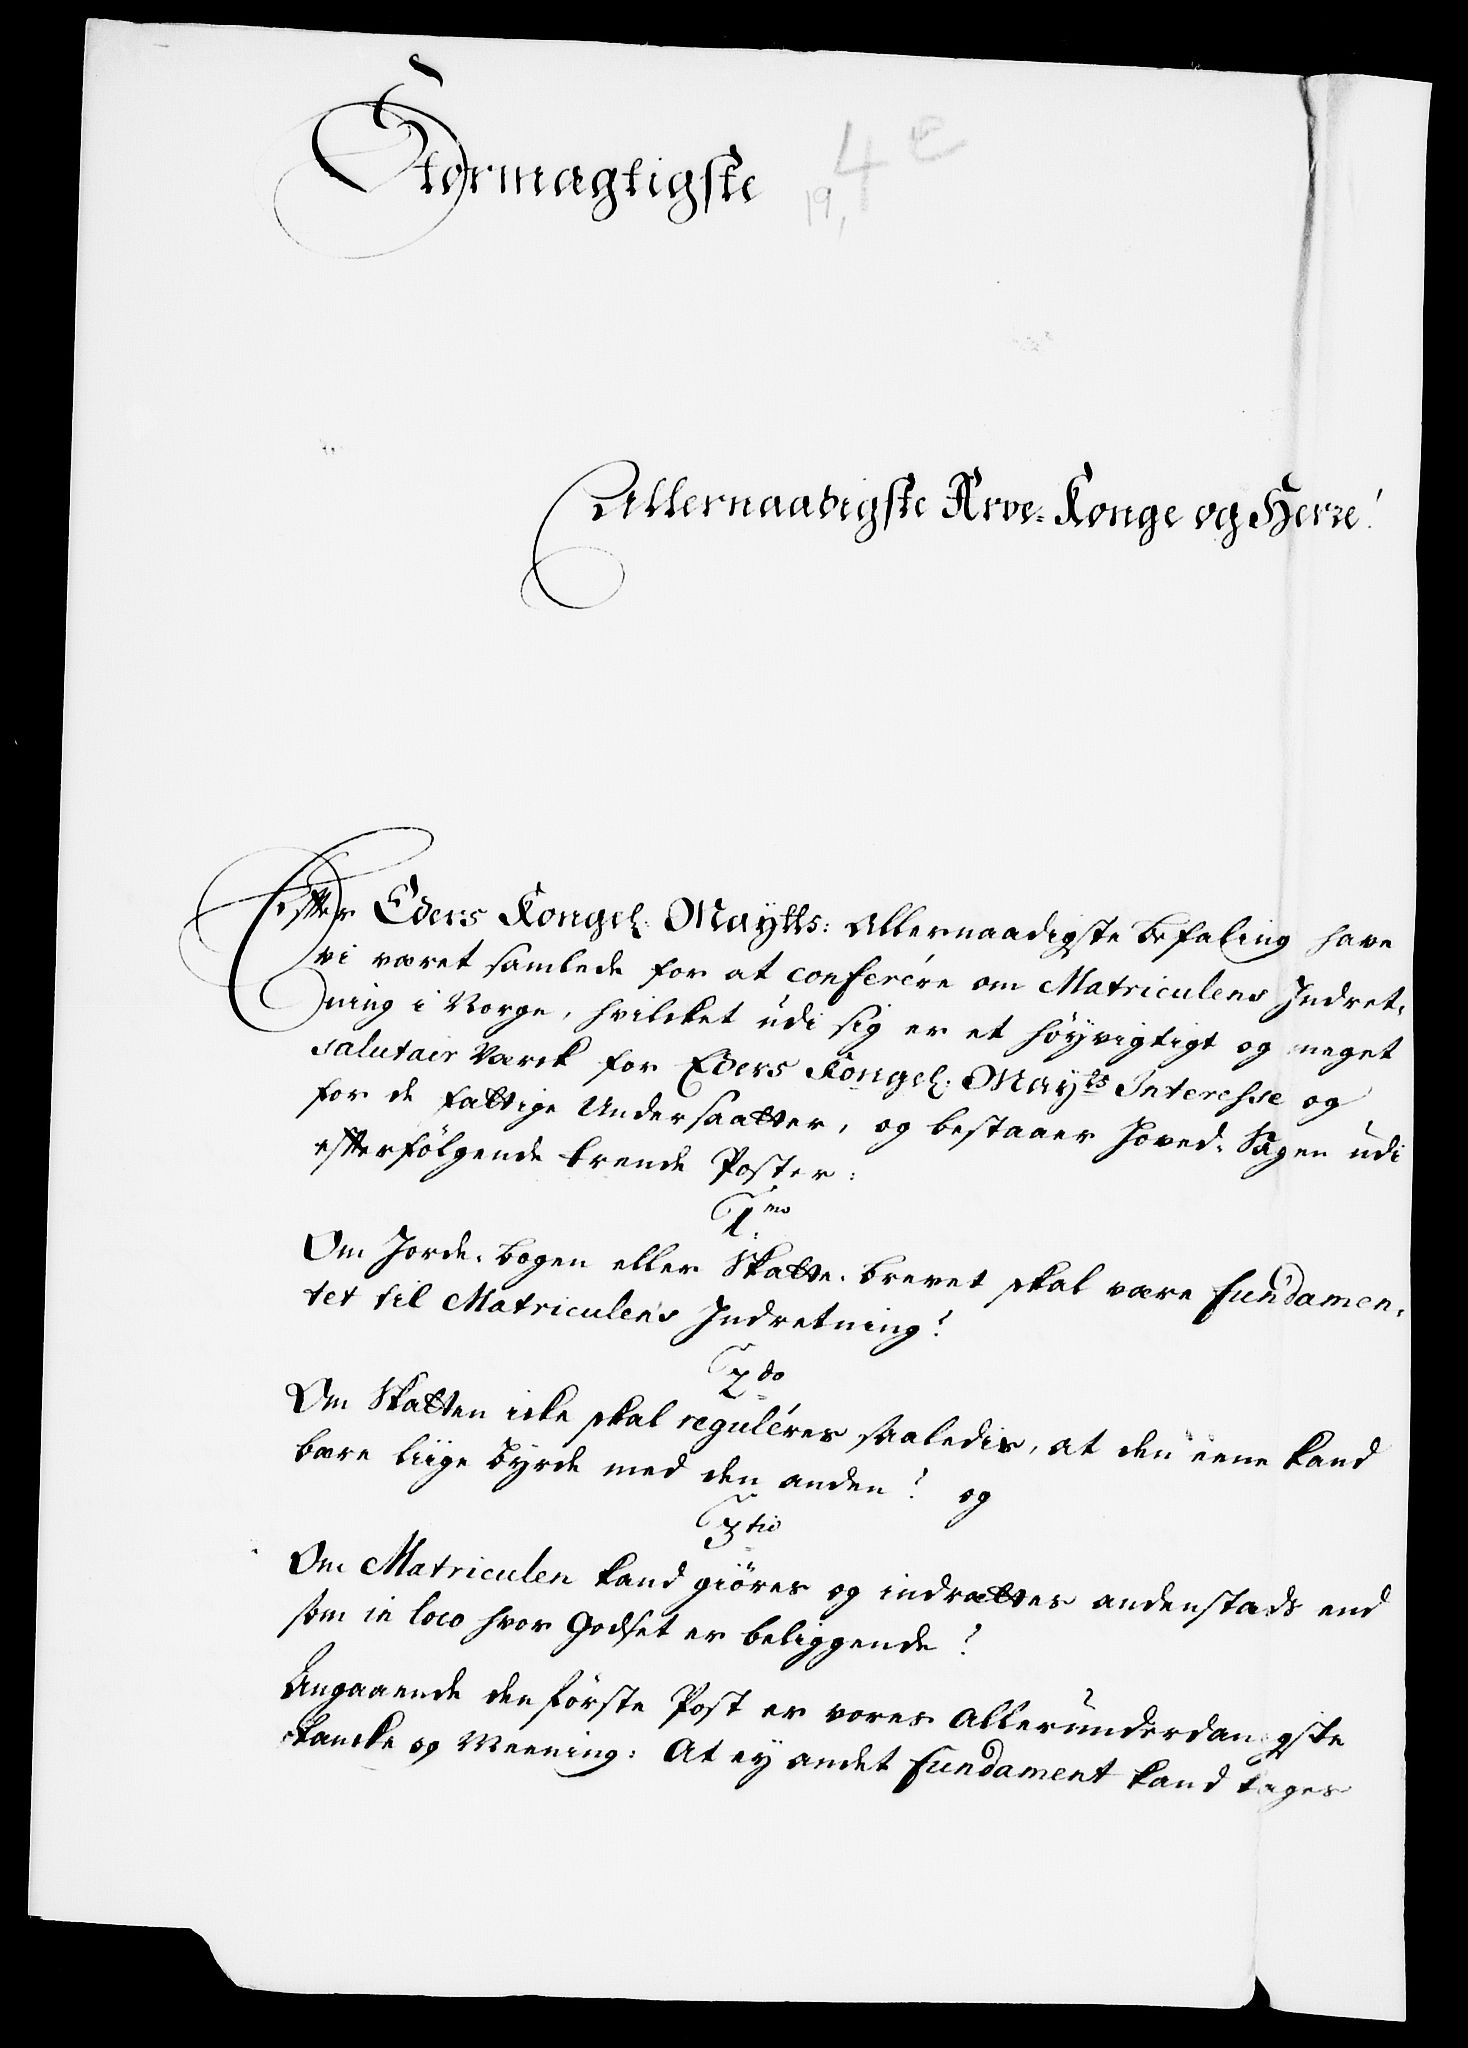 Stormagtigste
4 e
19,
Allernaadigste Arve-Konge og Herre!
Effter Eders Kongel: Mayts: Allernaadigste Befaling have
vi været samlede for at conferére om Matriculens Indret-
ning i Norge, hvilcket udi sig er et höyvigtigt og meget
salutair Værck for Eders Kongel: Mayts Interesse og
for de fattige Undersaatter, og bestaaer Hoved-Sagen udi
effterfölgende trende Poster:
1mo
Om Jorde-bogen eller Skatte-brevet skal være fundamen-
tet til Matriculens Indretning?
2do
Om Skatten icke skal reguléres saaledis, at den eene kand
bære liige Byrde med den anden? og
3tio
Om Matriculen kand giöres og indrættes andenstads end
som in loco hvor Godset er beliggende?
Angaaende den förste Post er vores Allerunderdanigste
tancke og Meening: At ey andet fundament kand tages